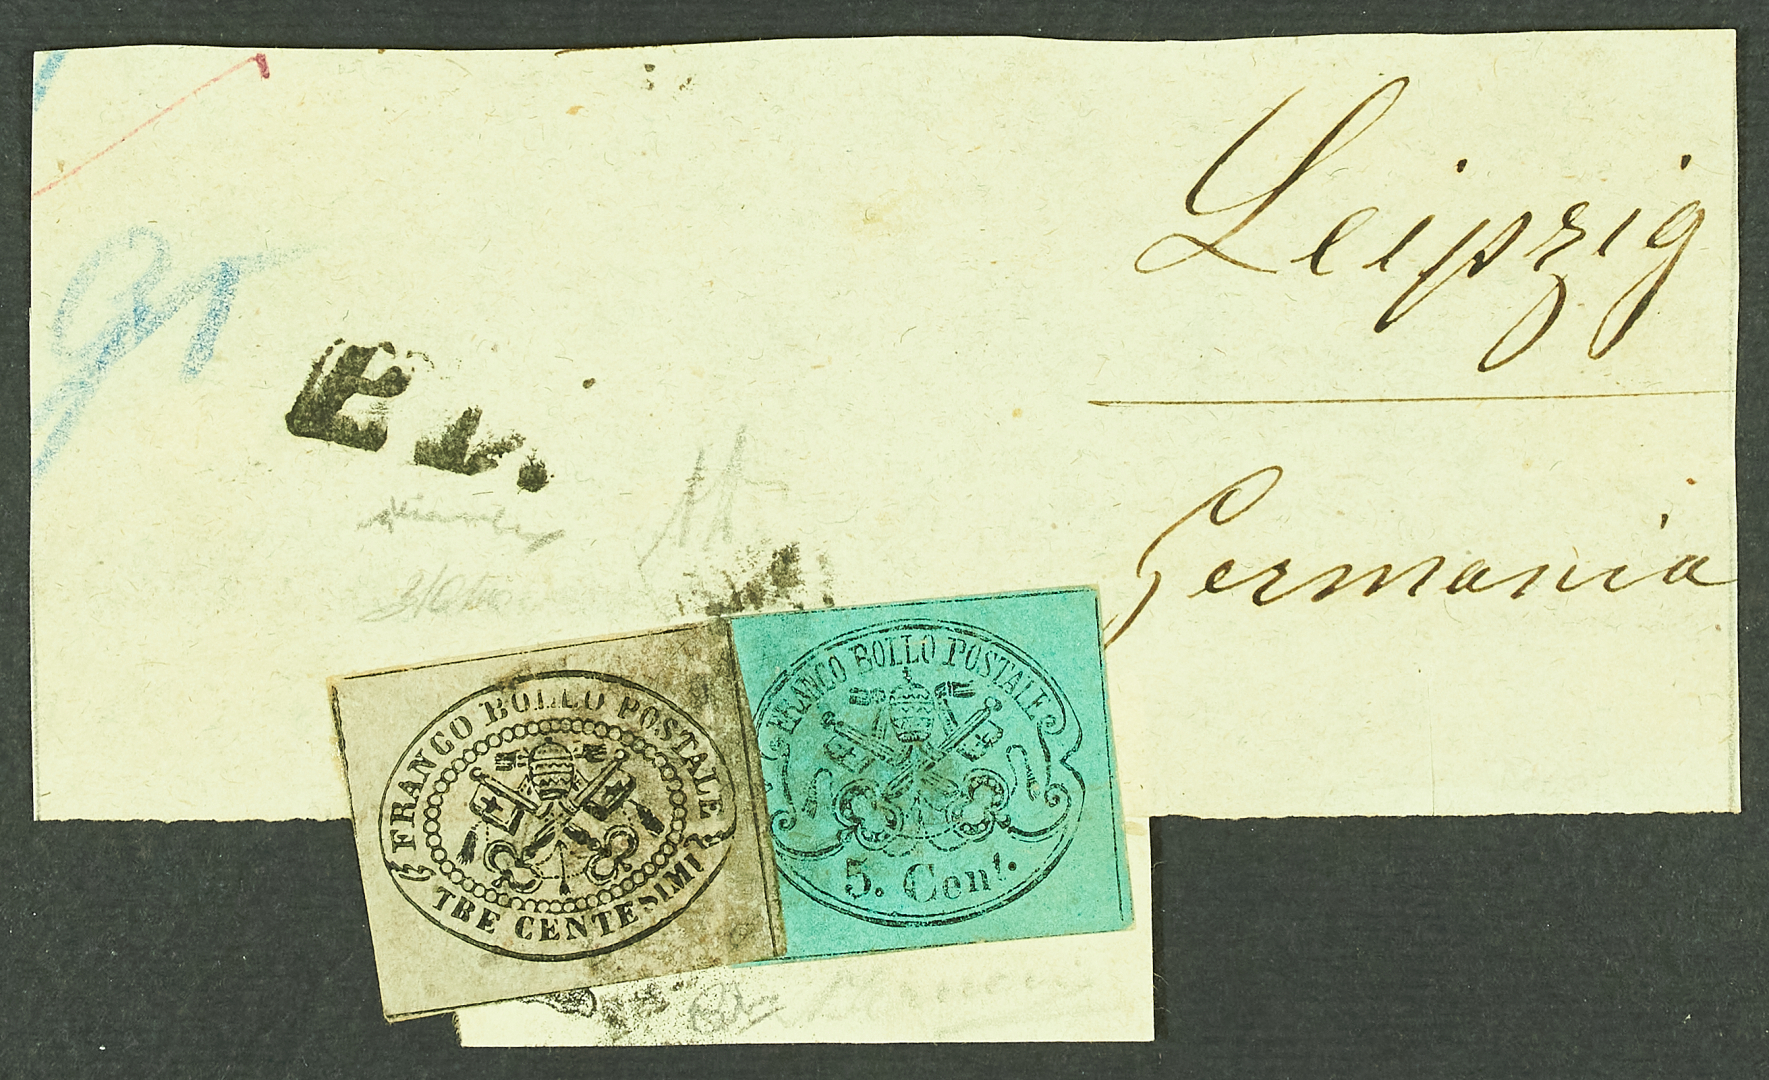 Leipzig
Germania
gr
P. D.
FRANCO BOLLO POSTALE
TRE CENTESIMI
FRANCO BOLLO POSTALE
5. Cent.